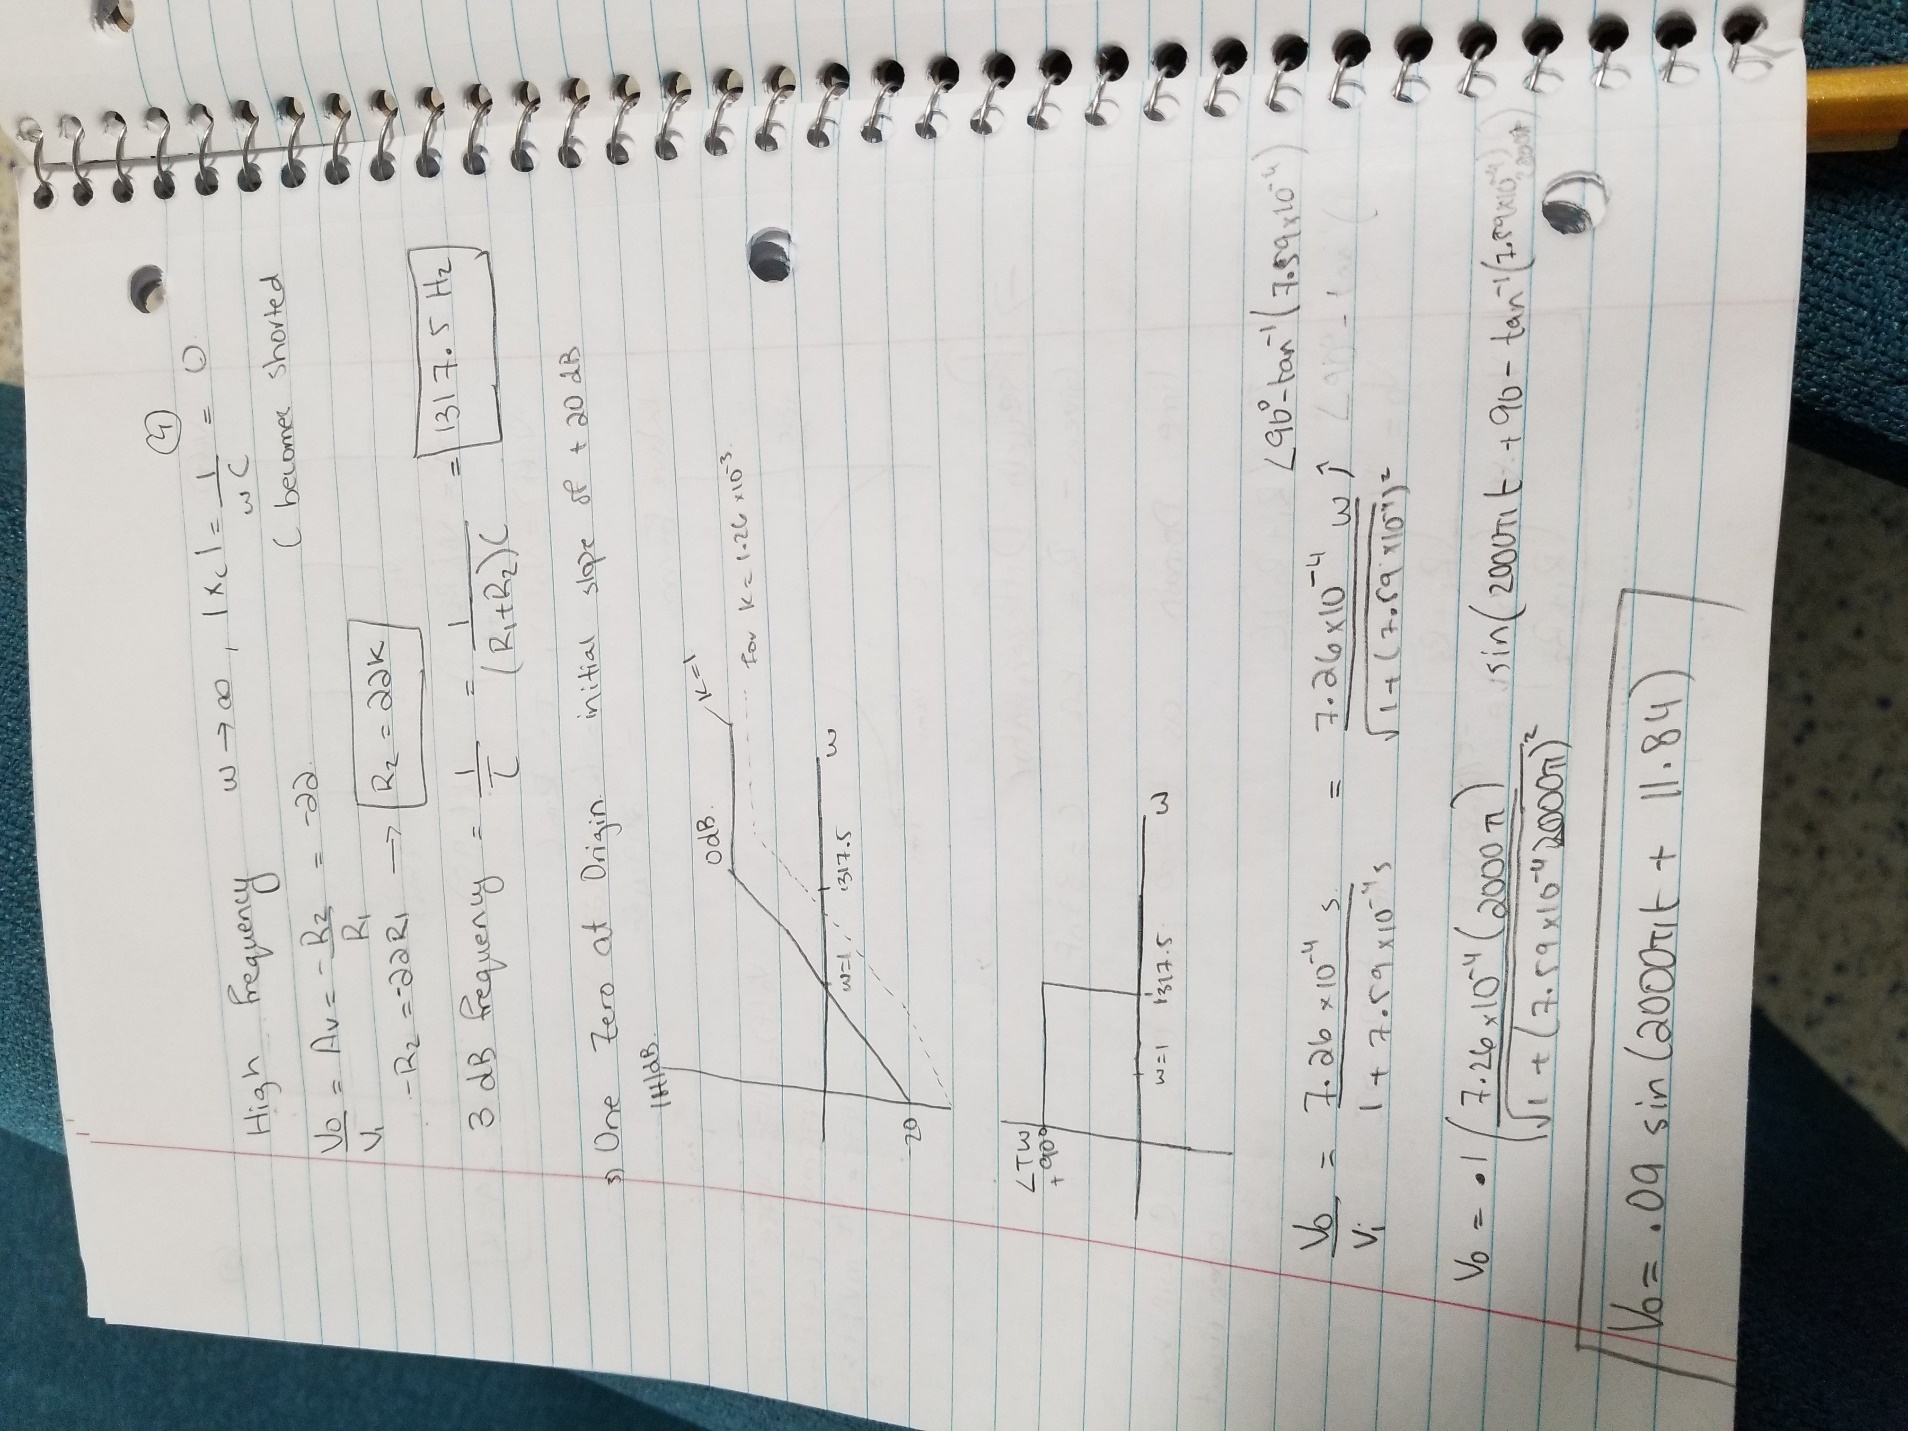 4
High frequency w→∞, |Xc| = 1/wC = 0
Vo/Vi = Av = -R2/R1 = -22 (become shorted
-R2 = -22R1 → R2 = 22K
3 dB frequency = 1/τ = 1/(R1+R2)C = 1317.5 Hz
3) One Zero at Origin. initial slope of +20 dB
|H|dB
0dB. K=1
for K = 1.26 x10^-3
w=1 1317.5 w
-20
∠TW
+90°
w=1 1317.5 w
Vo/Vi = 7.26 x10^-4 s / 1 + 7.59 x10^-4 s = 7.26 x10^-4 w j / √1+(7.59 x10^-4)^2 ∠90°-tan^-1(7.59x10^-4)
Vo = .1 (7.26x10^-4 (2000π) / √1+(7.59x10^-4 2000π)^2 sin(2000πt +90- tan^-1(7.59x10^-4) 2000π)
Vo = .09 sin(2000πt + 11.84)